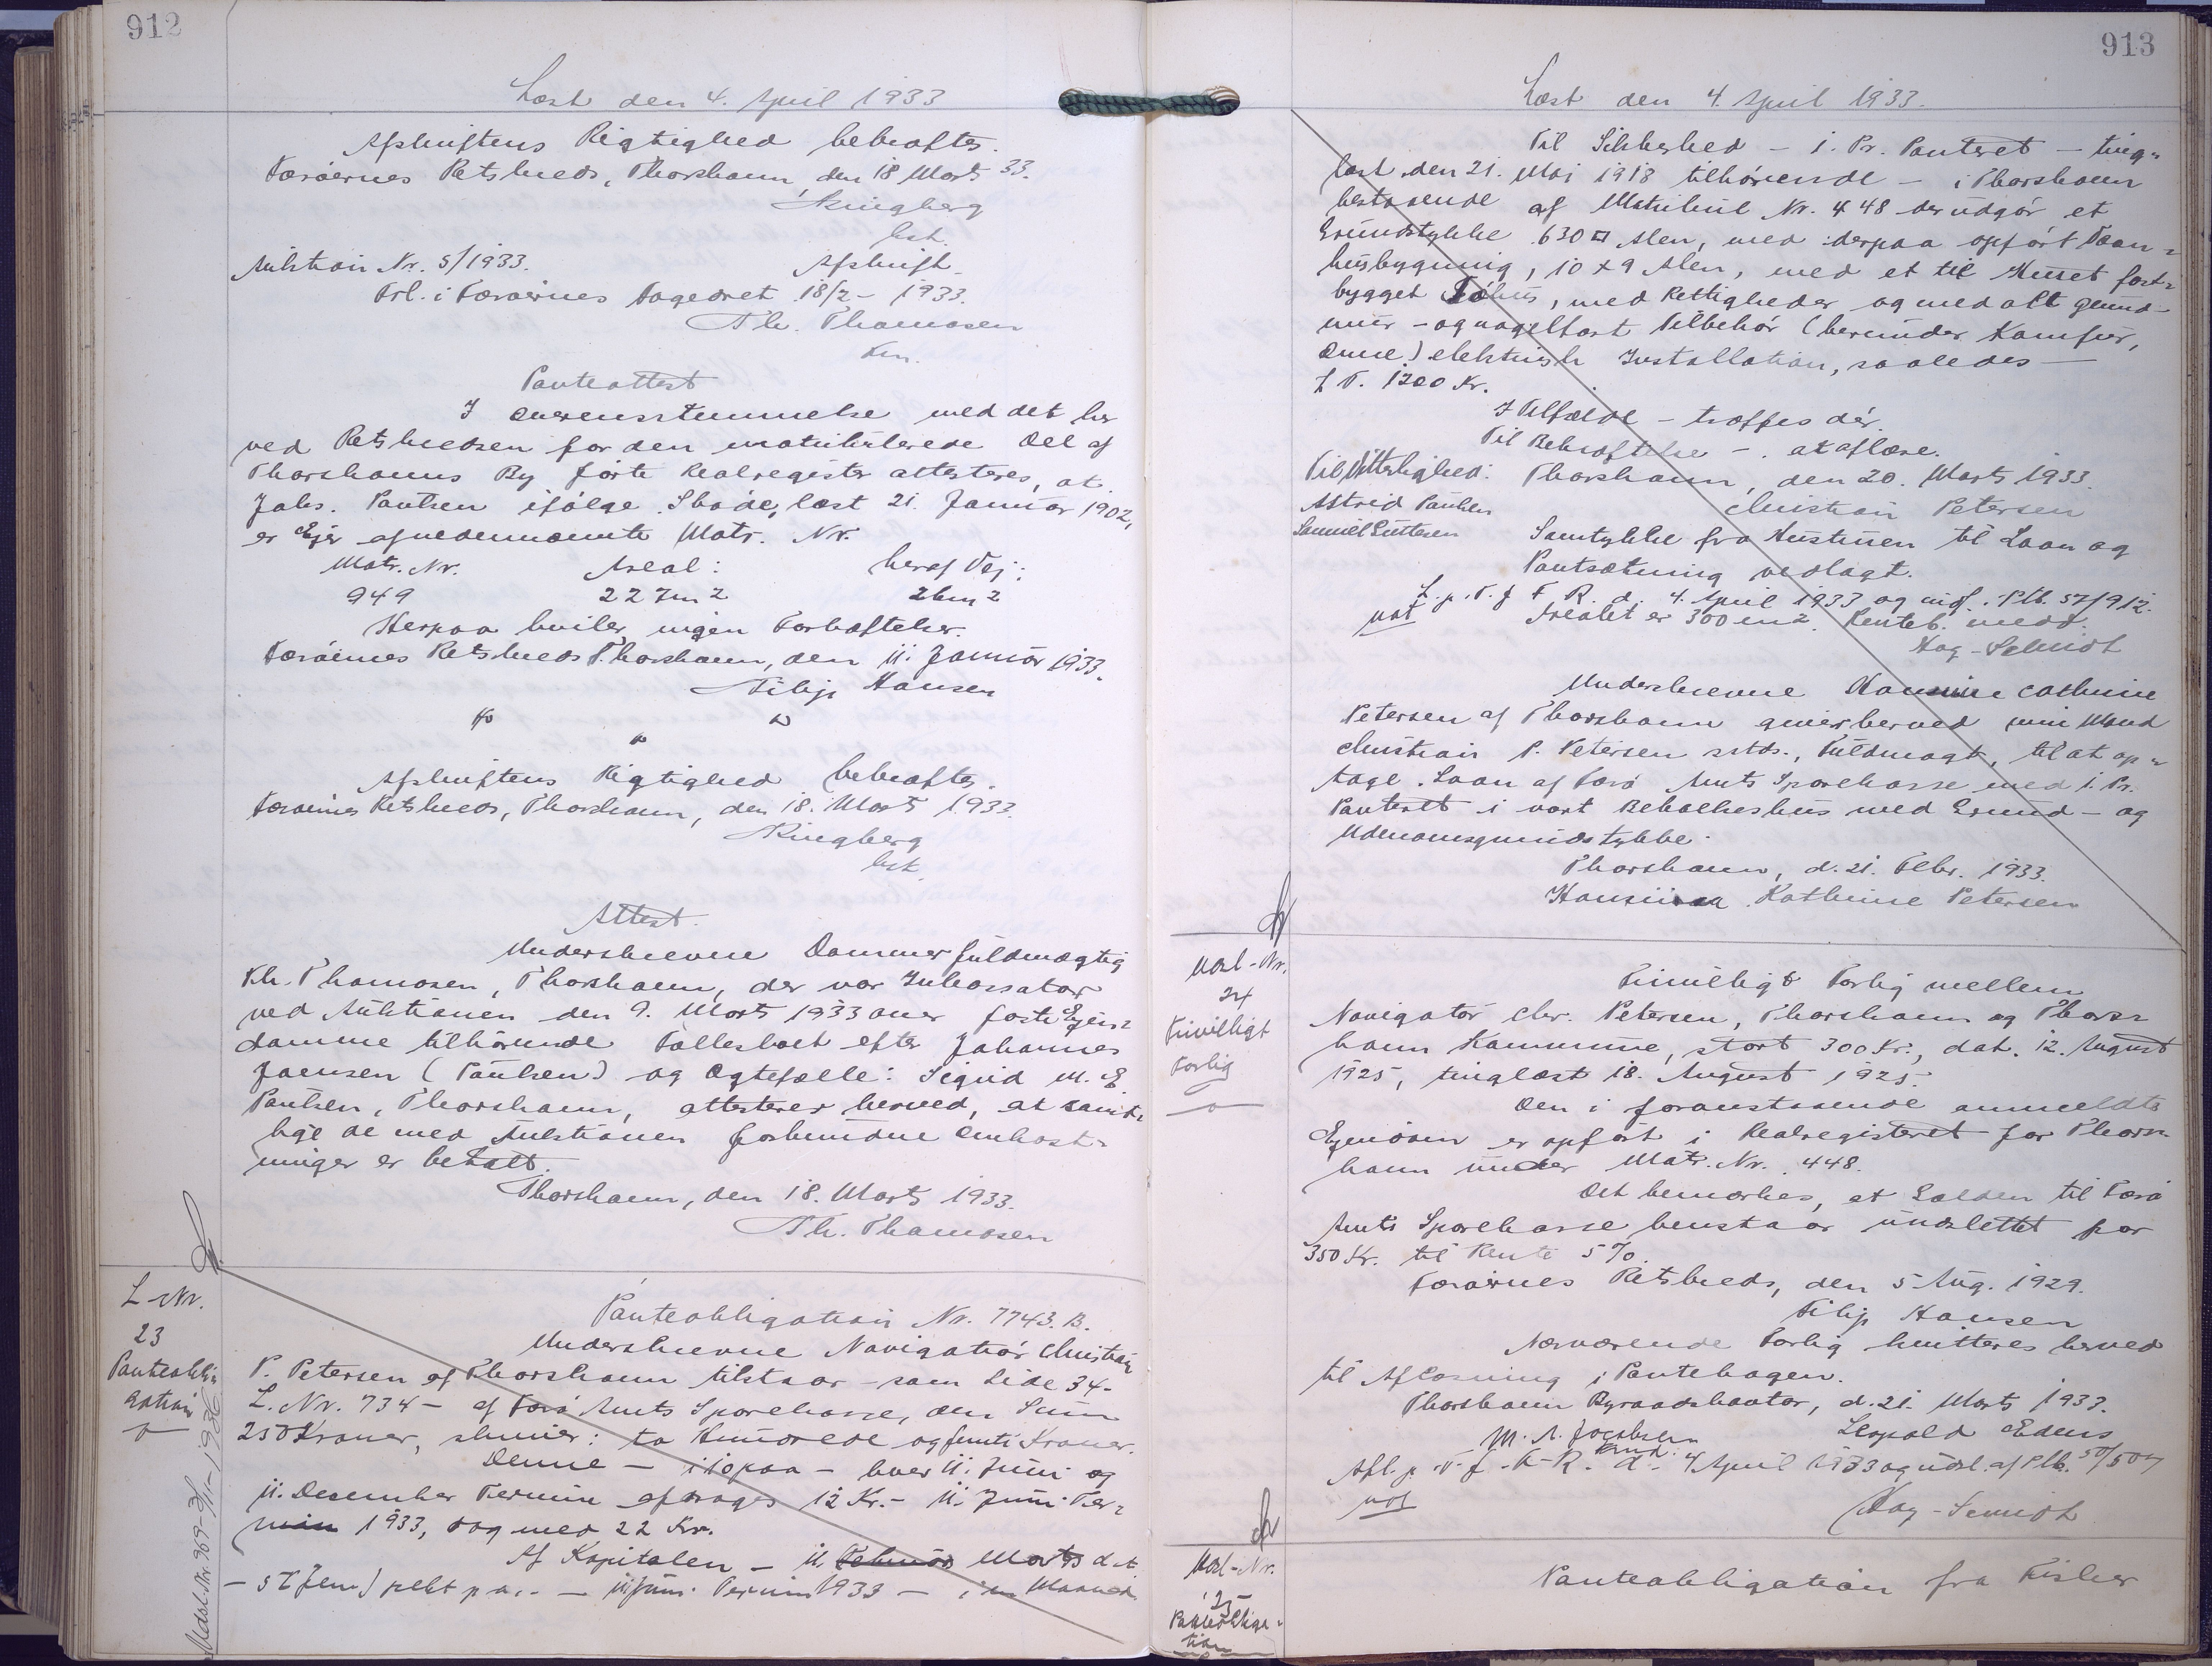 912
Læst den 4. April 1933
Afskriftens Rigtighed bekræftes.
Færøernes Retskreds, Thorshavn, den 18 Marts 33.
Ringberg
kst.
Auktion Nr. 5/1933. Afskrift
Frl. i Færøernes Fogedret 18/2 - 1933.
Th. Thomasen
Fm.
Panteattest
I Overensstemmelse med det her
ved Retskredsen for den matrikulerede Del af
Thorshavns By førte Realregister attesteres, at
Johs. Paulsen ifølge Skøde, læst 21. Januar 1902,
er Ejer af nedennævnte Matr. Nr.
Matr. Nr. Areal: heraf Vej:
949 227m2 26m2
Herpaa hviler ingen Forhæftelser.
Færøernes Retskreds Thorshavn, den 11. Januar 1933.
Filip Hansen
Afskriftens Rigtighed bekræftes.
Færøernes Retskreds, Thorshavn, den 18. Marts 1933.
Ringberg
kst.
Attest.
Underskrevne Dommerfuldmægtig
Kh. Thomasen, Thorshavn, der var Inkassator
ved Auktionen den 9. Marts 1933 over faste Ejen=
damme tilhørende Fællesboet efter Johannes
Joensen (Paulsen) og Ægtefælle: Sigrid M. E
Paulsen, Thorshavn, attesterer herved, at samt=
lige de med Auktionen forbundne Omkost=
ninger er betalt.
Thorshavn, den 18. Marts 1933.
Th. Thomasen
L-Nr.
23
Panteobli=
gation
Modsl. Nr. 969 - 1936
Panteobligation Nr. 7743. B.
Underskrevne Navigatør Christian
P. Petersen af Thorshavn tilstaar - som Side 34-
L. Nr. 734 - af Færø Amts Sparekasse, den Sum
250 Kroner, skriver: to Hundrede og femti Kroner.
Denne - i 10 paa - hver 11. Juni og
11. December Termin afdrages 12 Kr. - 11. Juni Ter=
min 1933, dog med 22 Kr.
Af Kapitalen - 11. Februar Marts d. A
- 5 (fem) pCt p a.. - 11 Juni Termin 1933 - i en Maaned
913
Læst den 4. April 1933.
Til Sikkerhed - 1. Pr. Panteret - ting=
læst den 21. Maj 1918 tilhørende - i Thorshavn
bestaaende af Matrikul Nr. 448 der udgør et
Grundstykke 630 □ Alen, med derpaa opført Vaan=
husbygning, 10 x 9 Alen, med et til Huset fast=
bygget Söhus, med Rettigheder og med alt grund-
mur - og nagelfast Tilbehør (herunder Komfur,
Ovne) elektrisk Installation, saaledes -
f T. 1200 Kr.
I Tilfælde - træffes dér.
Til Bekræftelse - at aflæse.
Til Vitterlighed: Thorshavn, den 20. Marts 1933.
Astrid Paulsen Christian Petersen
Samuel Guttesen Samtykke fra Hustruen til Laan og
Pantsætning vedlagt.
L. p. T. f F. R. d. 4. April 1933 og indf. i Ptb. 57/912.
not Arealet er 300 m2. Renteb. medd.
Hag-Schmidt
Underskrevne Hansine Cathrine
Petersen af Thorshavn giver herved min Mand
Christian P. Petersen sstds., Fuldmagt, til at op=
tage Laan af Færø Amts Sparekasse med 1. Pr.
Panteret i vort Beboelseshus med Grund - og
Udenomsgrundstykke.
Thorshavn, d. 21. Febr. 1933.
Hansina Kathrine Petersen
Udsl-Nr.
24
Frivilligt
Forlig
Frivilligt Forlig mellem
Navigatør Chr. Petersen, Thorshavn og Thors=
havn Kommune, stort 300 Kr., dat. 12. August
1925, tinglæst 18. August 1925.
Den i foranstaaende anmeldte
Ejendom er opført i Realregisteret for Thors=
havn under Matr. Nr. 448.
Det bemærkes, at Gælden til Færø
Amts Sparekasse henstaar uudslettet for
350 Kr. til Rente 5 %.
Færøernes Retskreds, den 5 Aug. 1929.
Filip Hansen
Nærværende Forlig kvitteres herved
til Aflæsning i Pantebogen.
Thorshavn Byraadskontor, d. 21. Marts 1933.
M. A. Jacobsen Leopold Edens
fmd.
Afl. p. V. f. F-R. d. 4 April 1933 og udsl. af Ptb. 50/507
not
Hag-Schmidt
Udsl-Nr.
25
Panteobliga=
tion
Panteobligation fra Fisker